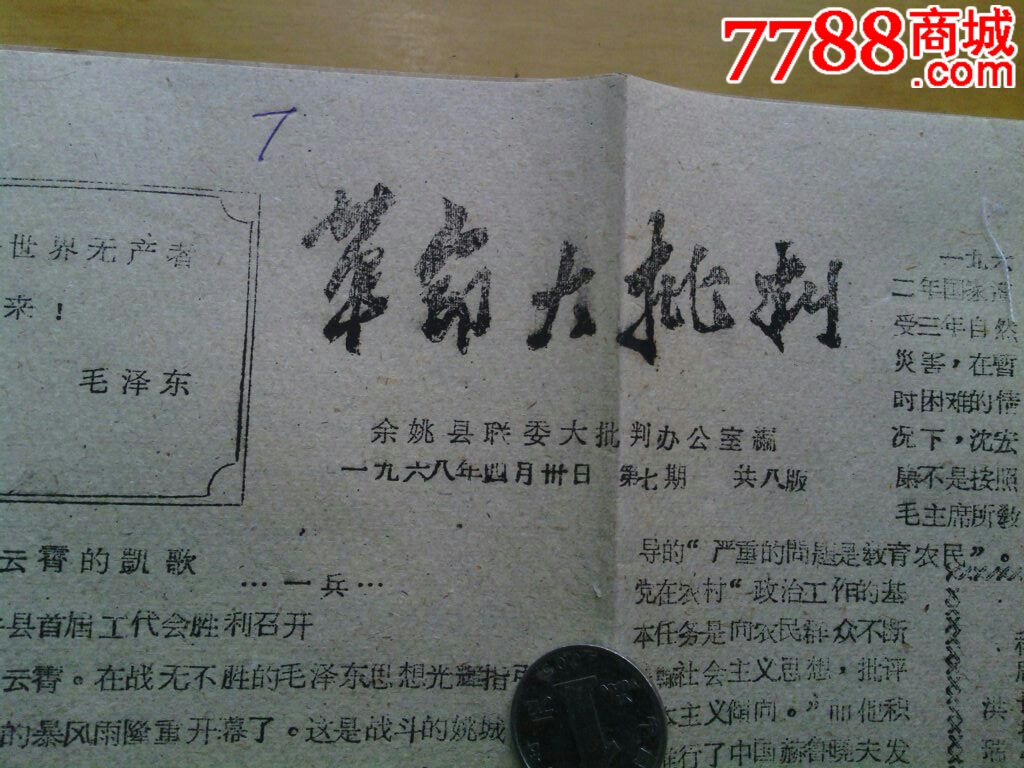 7788商城
.com
7
世界无产者
来！
毛泽东
革命大批判
余姚县联委大批判办公室编
一九六八年四月卅日 第七期 共八版
云霄的凯歌
…一兵…
县首届工代会胜利召开
云霄。在战无不胜的毛泽东思想光辉指
的暴风雨隆重开幕了。这是战斗的姚城
一九六
二年国家
受三年自然
災害，在暂
时困难的情
况下，沈宏
康不是按照
毛主席所教
导的“严重的問题是教育农民”。
党在农村“政治工作的基
本任务是向农民群众不断
社会主义思想，批评
本主义倾向。”而他积
推行了中国赫鲁晓夫发
洪